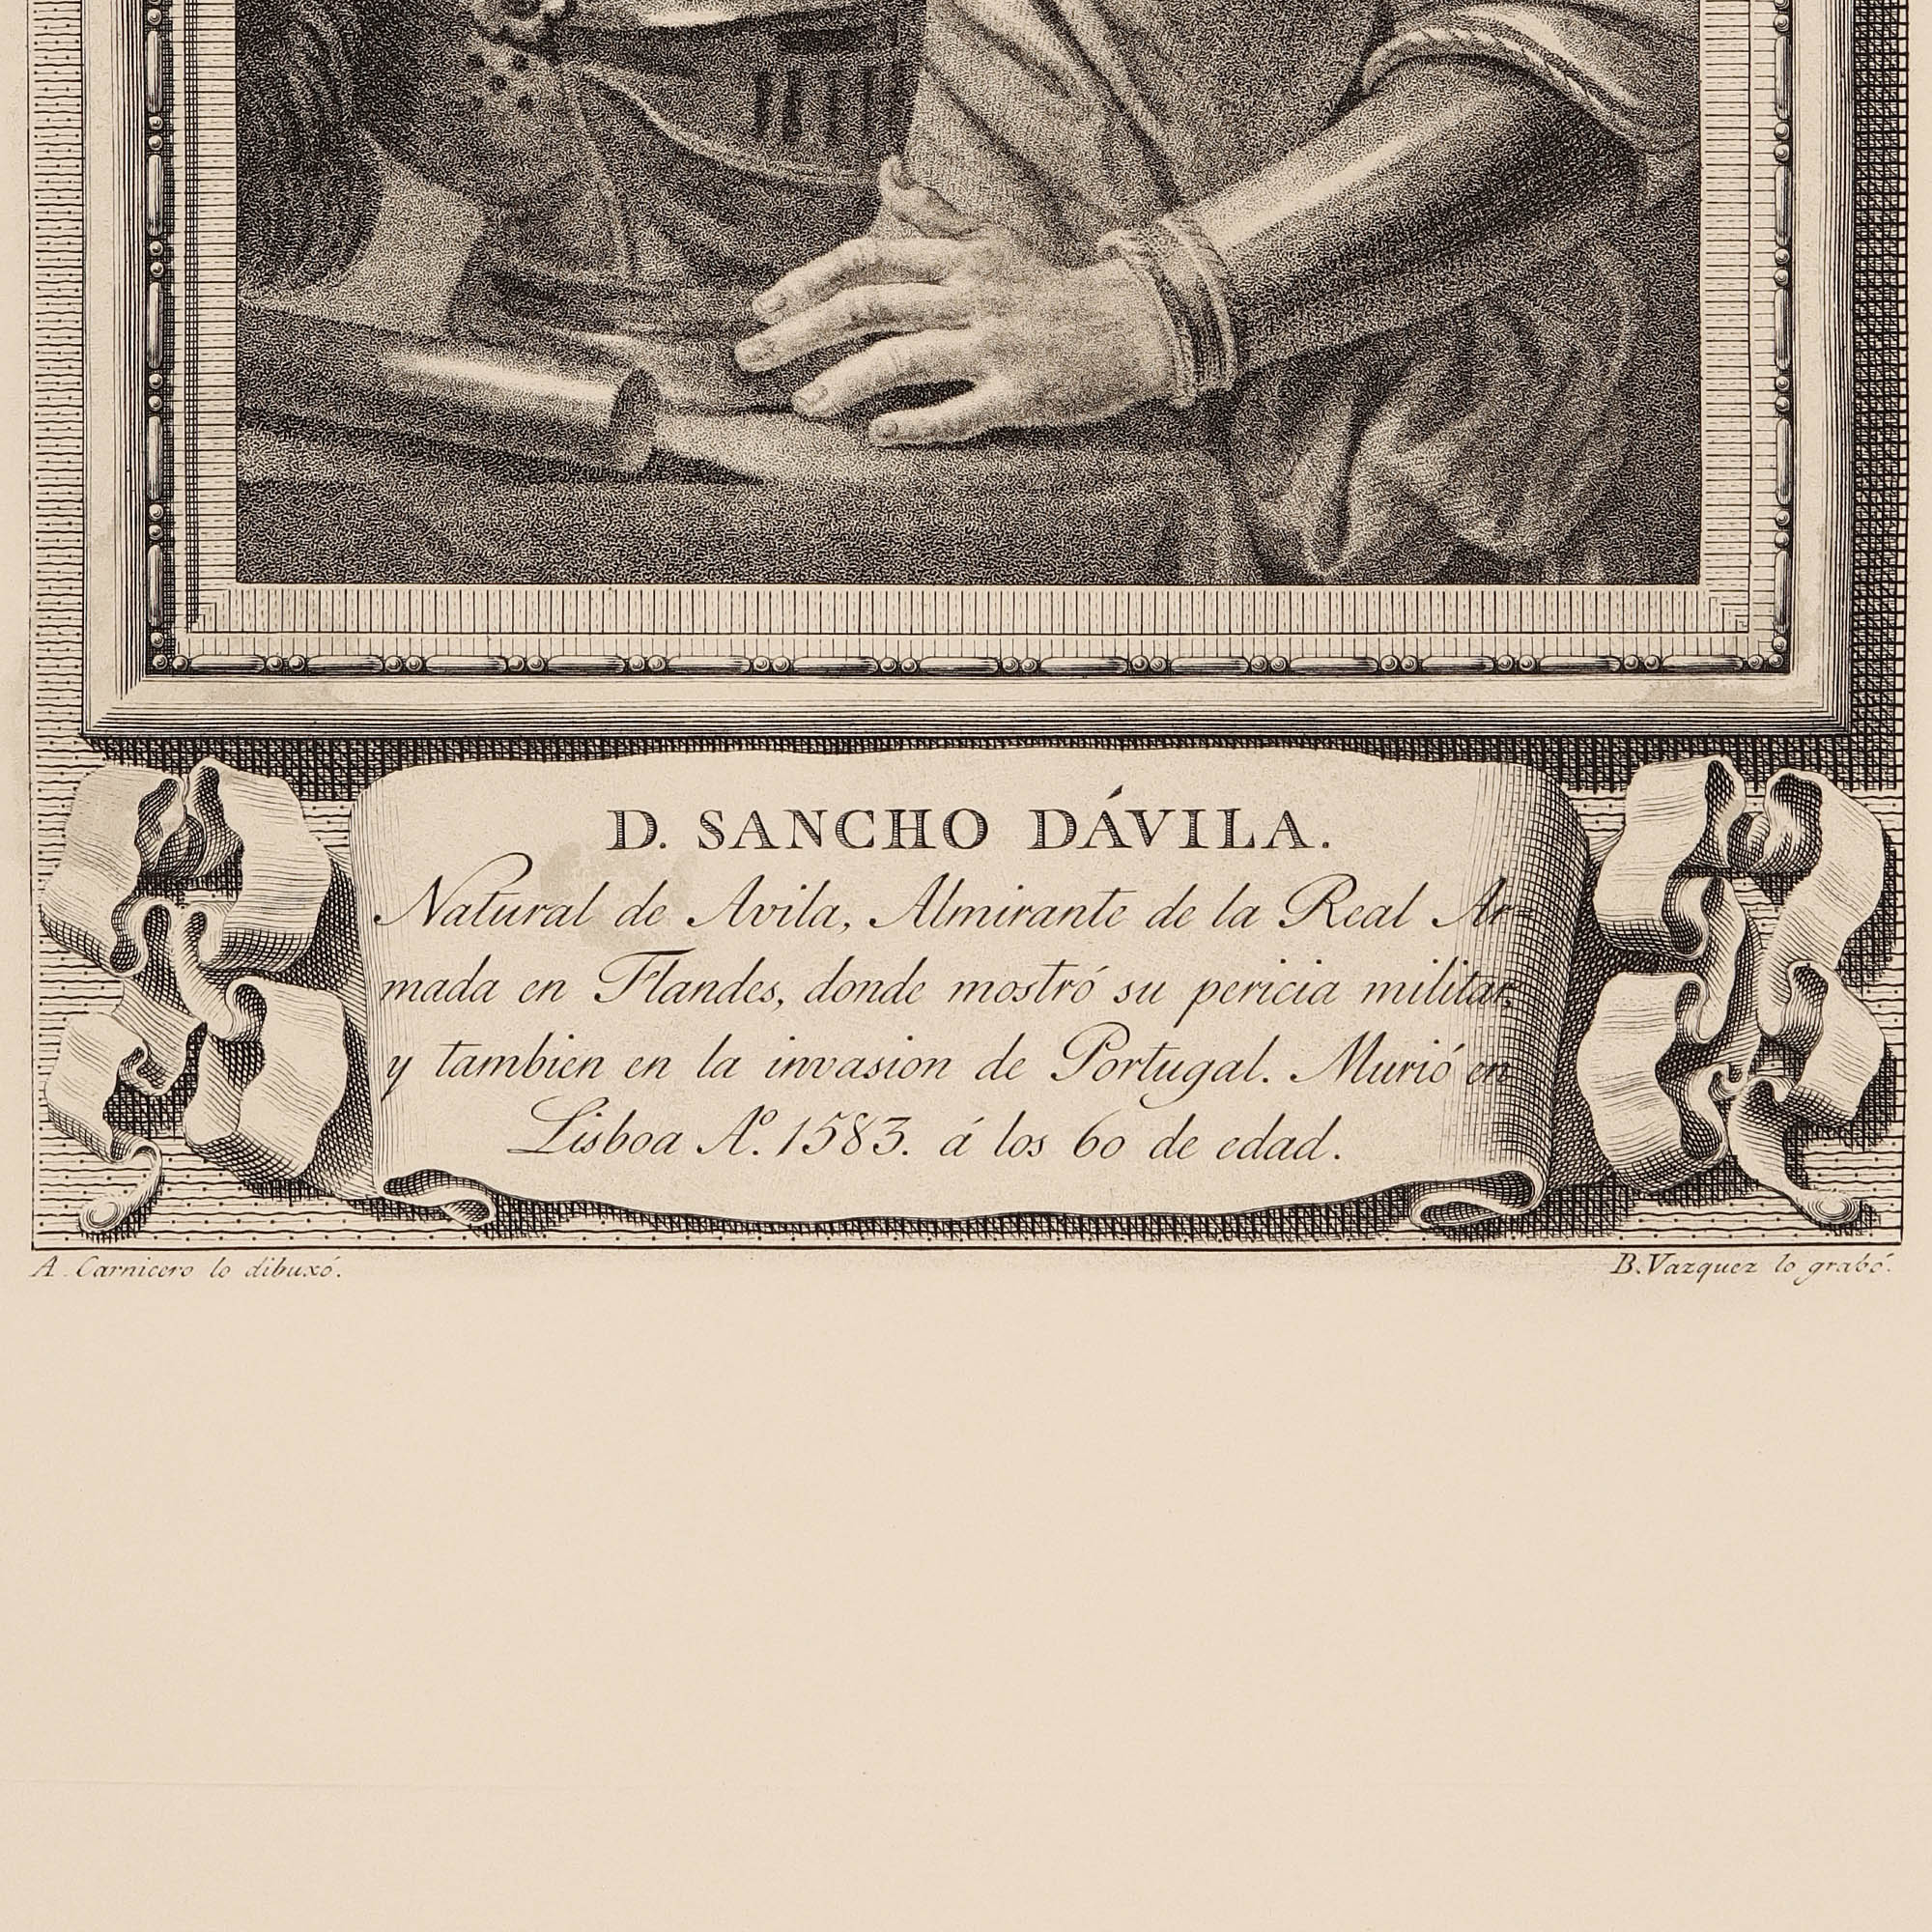 D. SANCHO DÁVILA.
Natural de Avila, Almirante de la Real Ar-
mada en Flandes, donde mostró su pericia militar,
y tambien en la invasion de Portugal. Murió en
Lisboa Aº. 1583. á los 60 de edad.
A. Carnicero lo dibuxó.
B. Vazquez lo grabó.